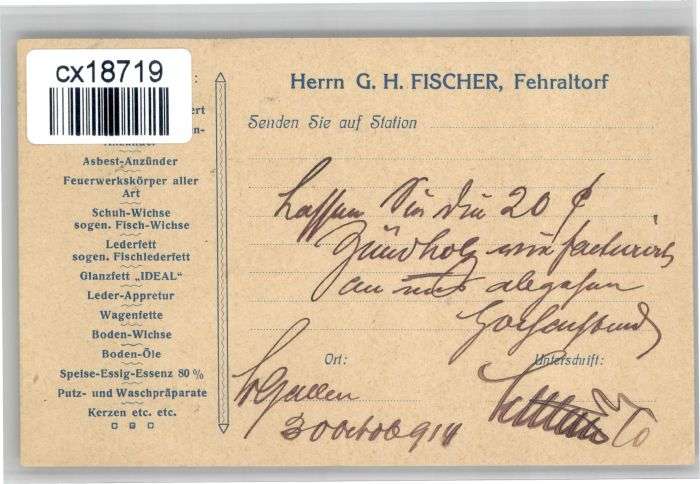 cx18719
Herrn G. H. FISCHER, Fehraltorf
Senden Sie auf Station
Asbest-Anzünder
Feuerwerkskörper aller
Art
Schuh-Wichse
sogen. Fisch-Wichse
Lederfett
sogen. Fischlederfett
Glanzfett „IDEAL“
Leder-Appretur
Wagenfette
Boden-Wichse
Boden-Öle
Speise-Essig-Essenz 80%
Putz- und Waschpräparate
Kerzen etc. etc.
Lassen Sie die 20
Zündholz wie facturirt
an uns abgehen
Ort:
Unterschrift:
St Gallen
30 Octob 911
Co